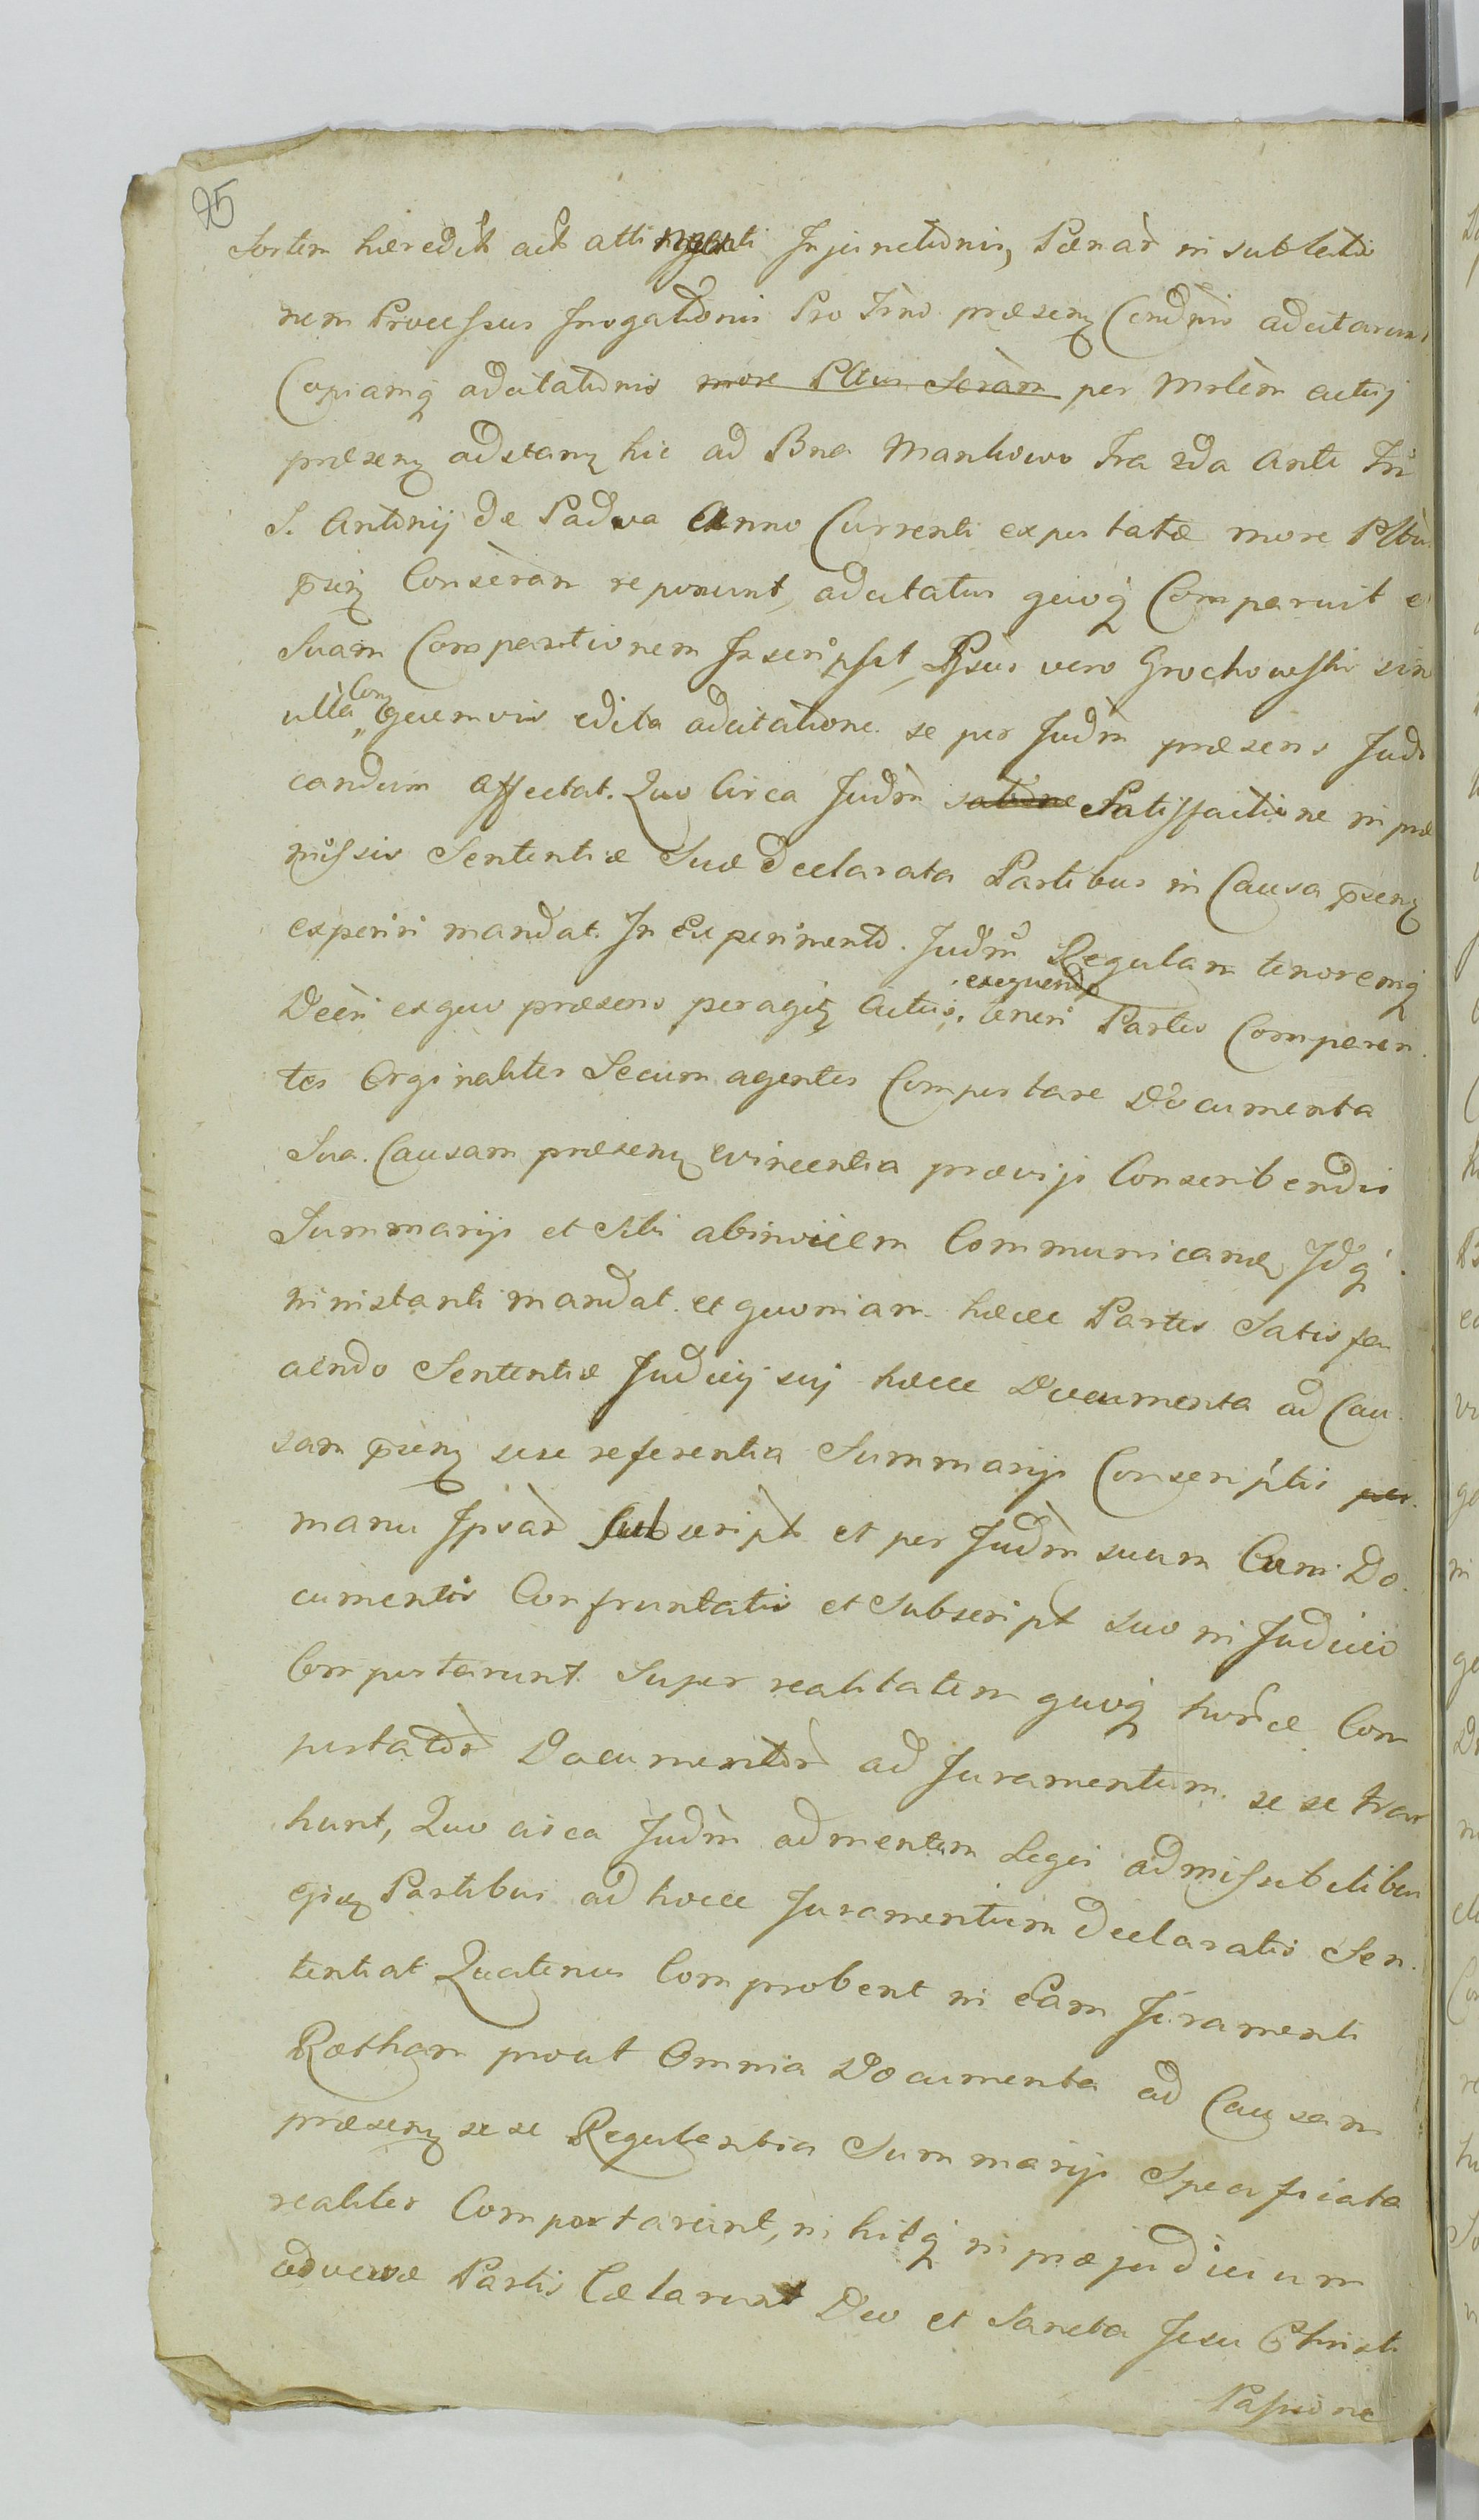 25
Sortem hæredit act atti Injunctionis, Pænar in sublatio
nem Processus Irrogationis Pro Trno præsenz Condnis adcitarunt
Copiamq adcitationis more Pltus Seram per Mrlem actuj
præsenz adstanz hic ad Bna Mankowo fra 2da Ante Fn
S. Antonij de Padua Anno Currenti exportatæ more Pltu
psenz Conseram reponunt, adcitatus quoq Comparuit et
Suam Comparitionem Inscripsit, Gsus vero Grochowski sin
ulla Con quemvis edita adcitatione se per Judm præsens Judi
candum affectat. Quo Circa Judm satione Satisfactione in præ
missis Sententiæ Suæ declarata Partibus in Causa psenz
experiri mandat. In Experimento. Judm Regulam tenoremq
Decri exquo præsens peragitz Actus, exequendo teneri Partes Comparen
tes Orginaliter Secum agentes Comportare Documenta
Sua. Causam præsenz evincentia prævijs Conscribendis
Summarijs et Sibi abinvicem Communicanda Idq
ininstanti mandat. et quoniam hæcce Partes Satisfa
ciendo Sententiæ Judicij suj hæcce Documenta ad Cau
sam psenz sese referentia Summarijs Conscriptis per
manu Ipsar Subscript et per Judm suum Cum Do
cumentis Confrontatis et Subscript suo in Judicio
Comportarunt. Super realitatem quoq horce Com
portator Documentor ad Juramentum se se trau
hunt, Quo circa Judm admentem Legis admissibilibus
ejsdz Partibus ad hocce Juramentum declaratis Sen
tentiat Quatenus Comprobent in Eam Juramenti
Rotham prout Omnia Documenta ad Causam
præsenz se se Regulantia Summarijs Specificata
realiter Comportarunt, nihilq in præjudicium
adversæ Partis Cælarunt Deo et Sancta Jesu Christi
Passione